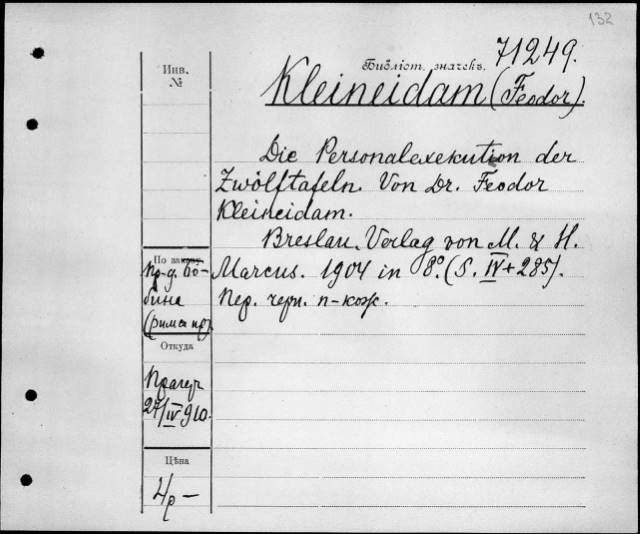 132
71249.
Инв.
№
Библіот. значекъ.
Kleineidam (Feodor).
Die Personalexekution der
Zwölftafeln. Von Dr. Feodor
Kleineidam.
Breslau. Verlag von M. & H.
Marcus. 1904 in 8º. (S. IV + 285).
Пер. черн. п-кож.
По заказу
Пр-д. Бо-
бина
(римск пр).
Откуда
Прагер
27/IV 910.
Цѣна
4р —